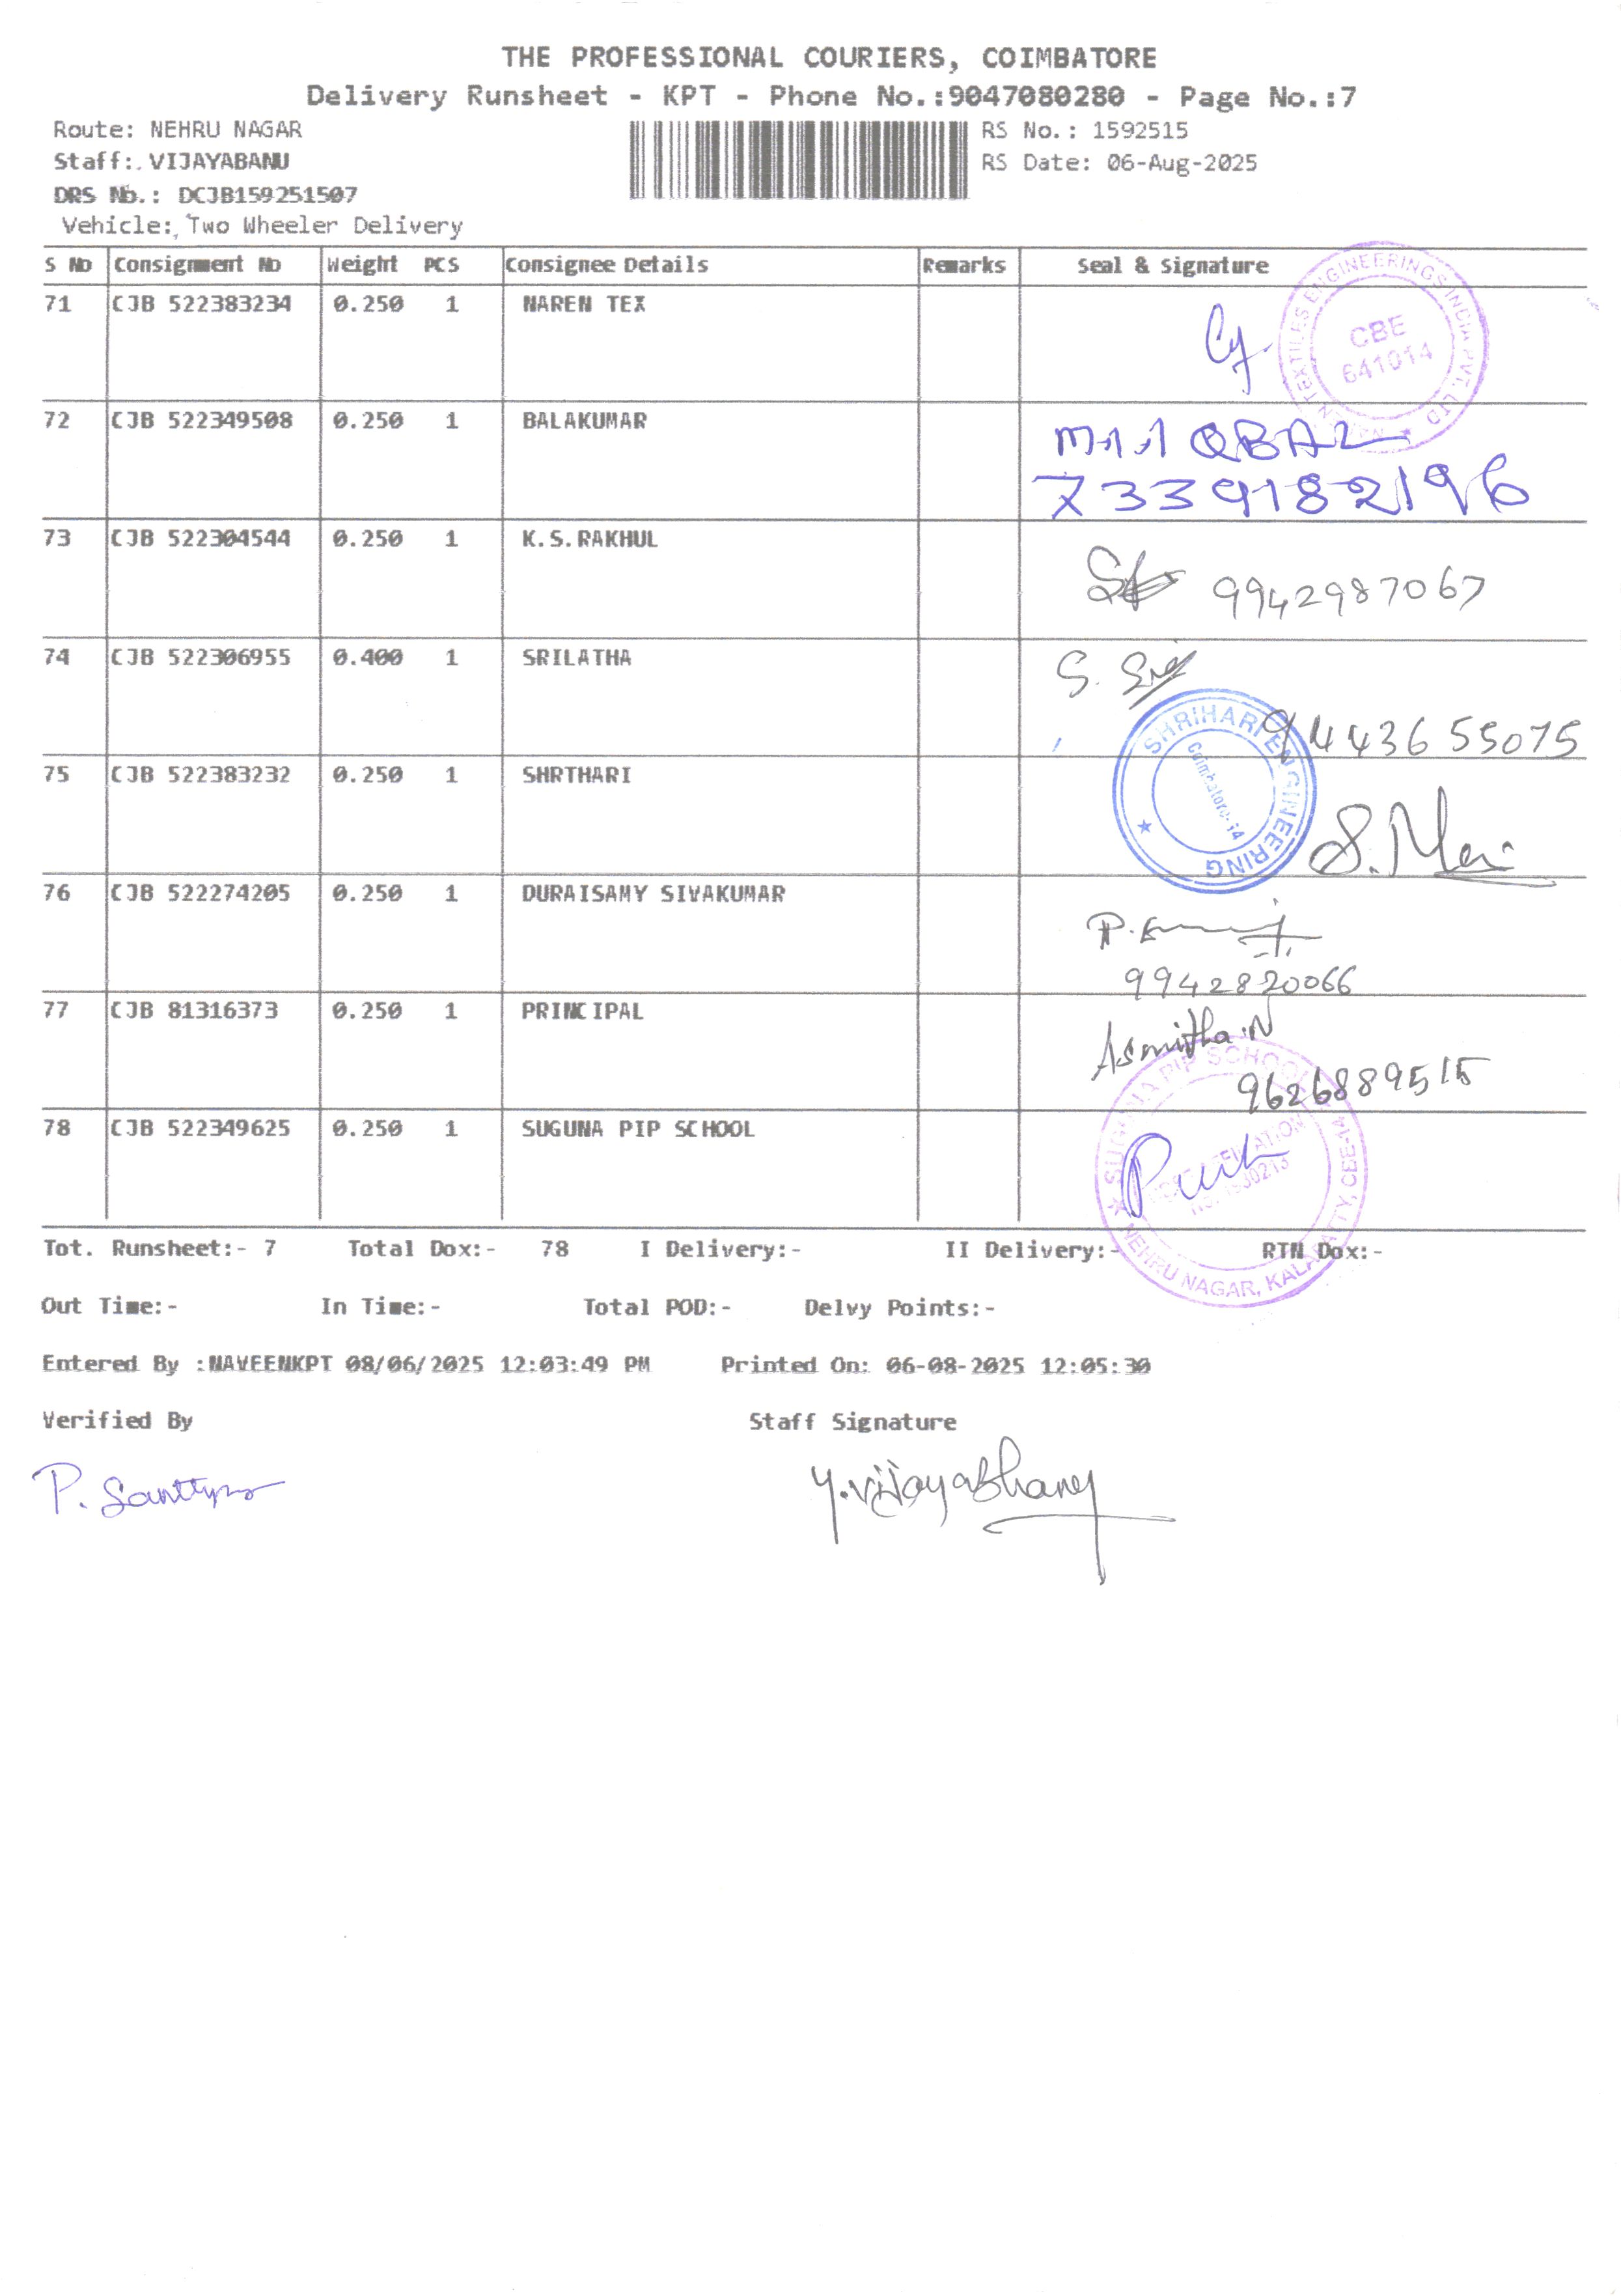 THE PROFESSIONAL COURIERS, COIMBATORE
Delivery Runsheet - KPT - Phone No.:9047080280 - Page No.:7
Route: NEHRU NAGAR
RS No.: 1592515
Staff: VIJAYABANU
RS Date: 06-Aug-2025
DRS No.: DCJB159251507
Vehicle: Two Wheeler Delivery
S No Consignment No Weight PCS Consignee Details Remarks Seal & Signature
71 CJB 522383234 0.250 1 NAREN TEX
TEXTILES ENGINEERINGS INDIA PVT. LTD
CBE
641014
72 CJB 522349508 0.250 1 BALAKUMAR
QBAL
7339182196
73 CJB 522304544 0.250 1 K.S.RAKHUL
9942987067
74 CJB 522306955 0.400 1 SRILATHA
S.
9443655075
75 CJB 522383232 0.250 1 SHRTHARI
SHRIHARI ENGINEERING
Coimbatore-14
76 CJB 522274205 0.250 1 DURAISAMY SIVAKUMAR
9942820066
77 CJB 81316373 0.250 1 PRINCIPAL
Asmitha.N
9626889515
78 CJB 522349625 0.250 1 SUGUNA PIP SCHOOL
SUGUNA PIP SCHOOL
NEHRU NAGAR, KALAPATTY, CBE-14
Tot. Runsheet:- 7 Total Dox:- 78 I Delivery:- II Delivery:- RTN Dox:-
Out Time:- In Time:- Total POD:- Delvy Points:-
Entered By :NAVEENKPT 08/06/2025 12:03:49 PM Printed On: 06-08-2025 12:05:30
Verified By Staff Signature
P.